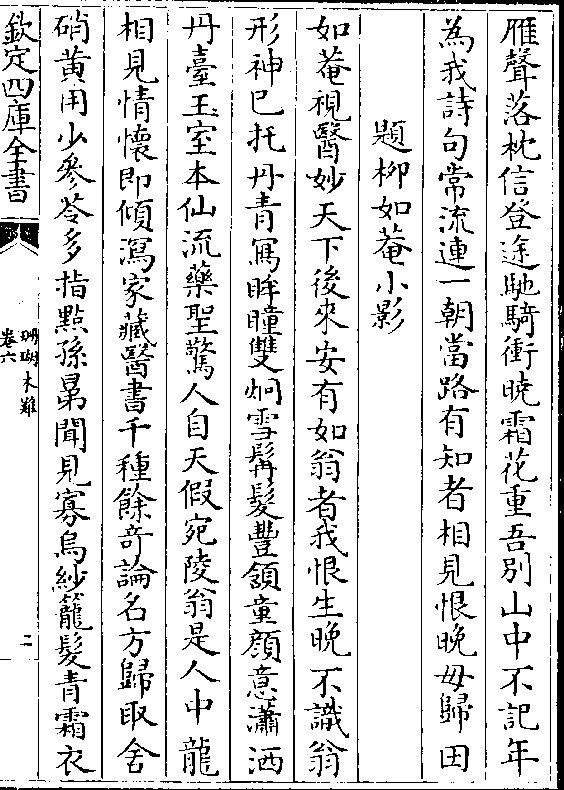 雁聲落枕信登途馳騎衝曉霜花重吾別山中不記年
為我詩句常流連一朝當路有知者相見恨晚毋歸田
題柳如菴小影
如菴視醫妙天下後來安有如翁者我恨生晚不識翁
形神已托丹青寫眸瞳雙炯雪髯髮豐頷童顔意瀟洒
丹臺玉室本仙流藥聖驚人自天假宛陵翁是人中龍
相見情懷即傾瀉家藏醫書千種餘奇論名方歸取舍
硝黃用少參苓多指㸃孫㫒聞見寡烏紗籠髮青霜衣
欽定四庫全書
珊瑚木難
卷六
二